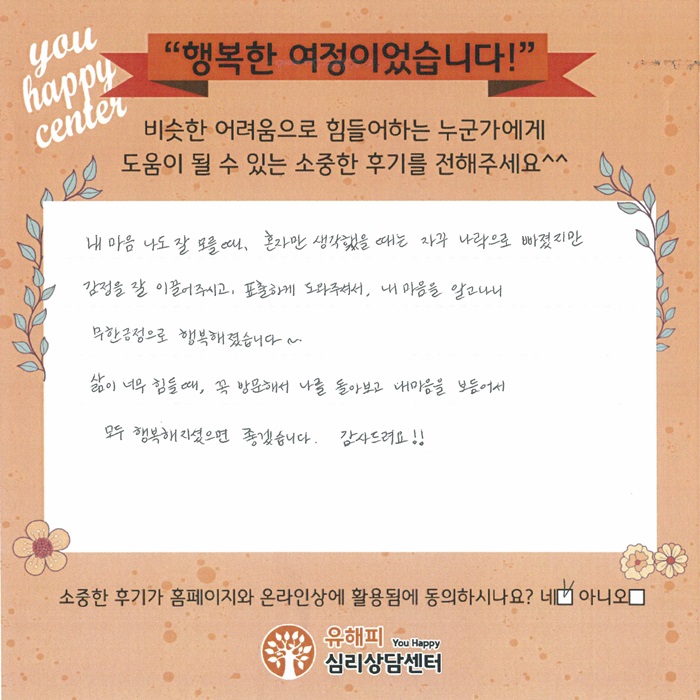 you
happy
center
“행복한 여정이었습니다!”
비슷한 어려움으로 힘들어하는 누군가에게
도움이 될 수 있는 소중한 후기를 전해주세요^^
내 마음 나도 잘 모를때, 혼자만 생각했을 때는 자꾸 나락으로 빠졌지만
감정을 잘 이끌어주시고, 표출하게 도와주셔서, 내 마음을 알고나니
무한긍정으로 행복해졌습니다~
삶이 너무 힘들때, 꼭 방문해서 나를 돌아보고 내마음을 보듬어서
모두 행복해지셨으면 좋겠습니다. 감사드려요!!
소중한 후기가 홈페이지와 온라인상에 활용됨에 동의하시나요? 네 아니오
유해피 You Happy
심리상담센터